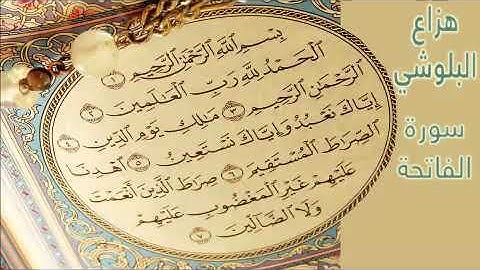 هزاع
البلوشي
سورة
الفاتحة
بِسْمِ ٱللَّهِ ٱلرَّحْمَٰنِ ٱلرَّحِيمِ ١
ٱلْحَمْدُ لِلَّهِ رَبِّ ٱلْعَٰلَمِينَ ٢
ٱلرَّحْمَٰنِ ٱلرَّحِيمِ ٣ مَٰلِكِ يَوْمِ ٱلدِّينِ ٤
إِيَّاكَ نَعْبُدُ وَإِيَّاكَ نَسْتَعِينُ ٥ ٱهْدِنَا
ٱلصِّرَٰطَ ٱلْمُسْتَقِيمَ ٦ صِرَٰطَ ٱلَّذِينَ أَنْعَمْتَ
عَلَيْهِمْ غَيْرِ ٱلْمَغْضُوبِ عَلَيْهِمْ
وَلَا ٱلضَّآلِّينَ ٧